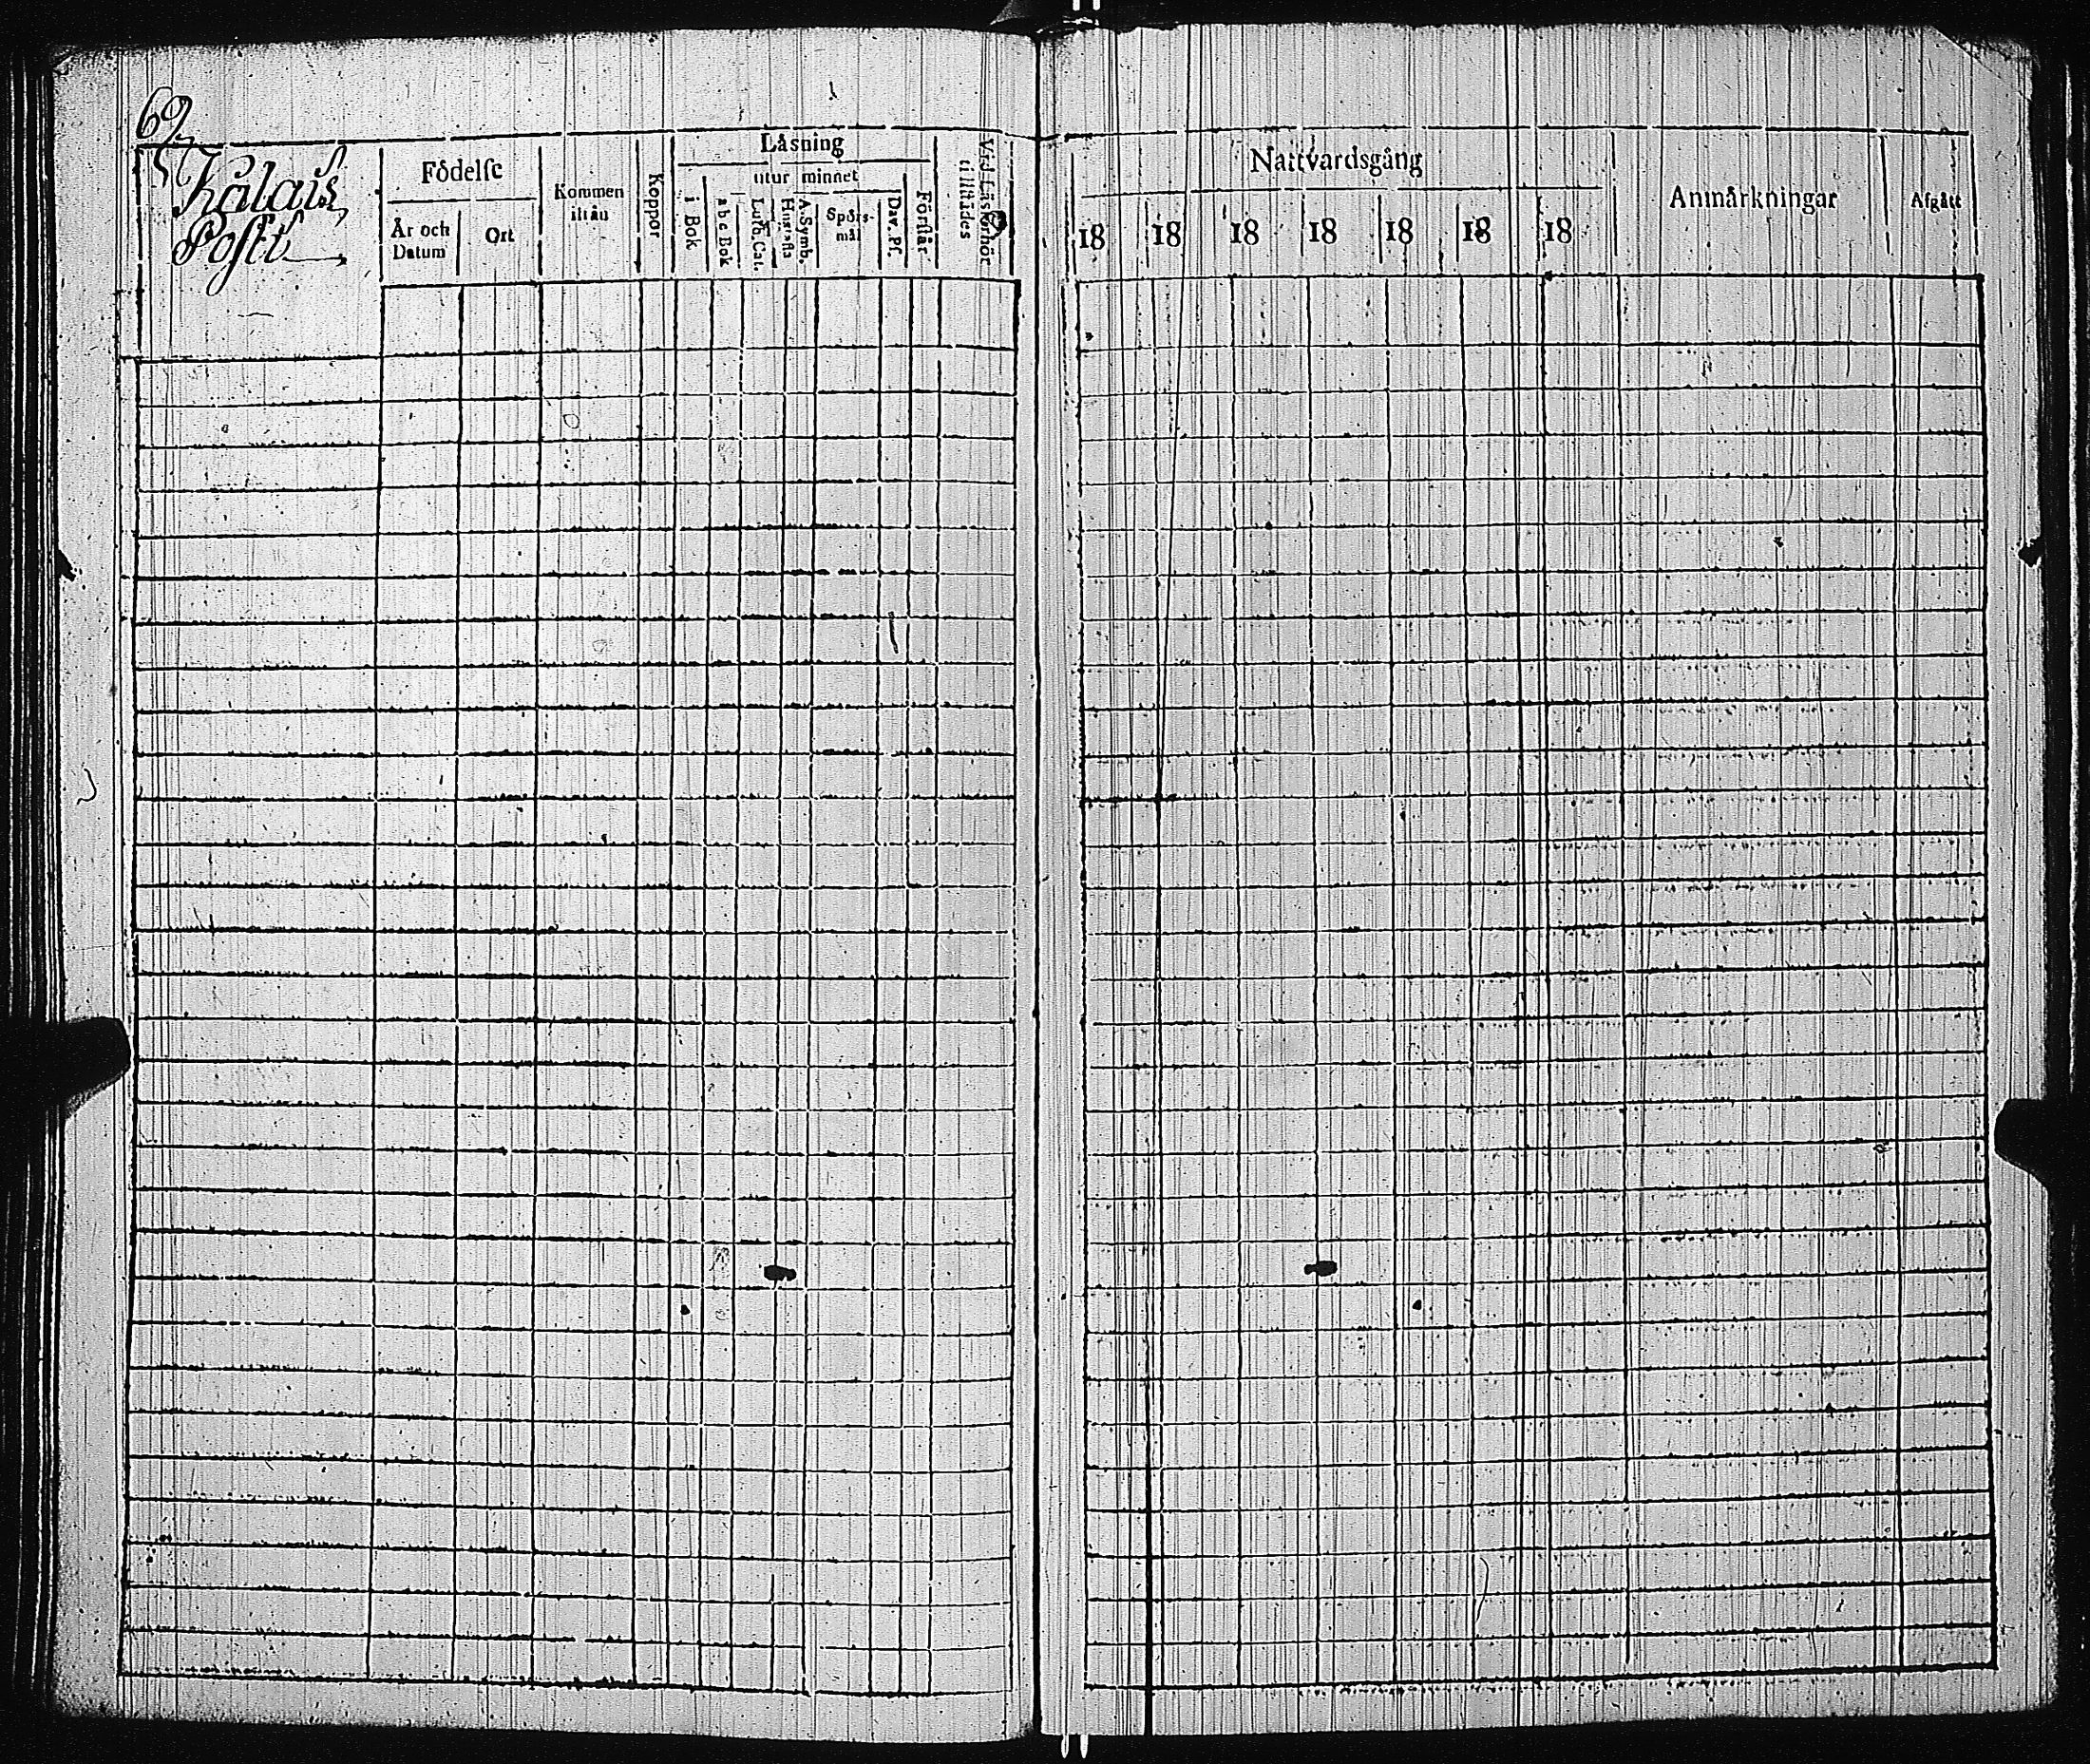 69
Kälais
Post
Födelse
År och Datum
Ort
Kommen ifrån
Koppor
Läsning
utur minnet
i Bok
abc Bok
Luth. Cat.
Hustafla
A. Symb.
Spörs-mål
Dav. Ps.
Förstår
Vid Läsförhör tillstädes
Nattvardsgång
18 18 18 18 18 18 18
Anmärkningar
Afgått